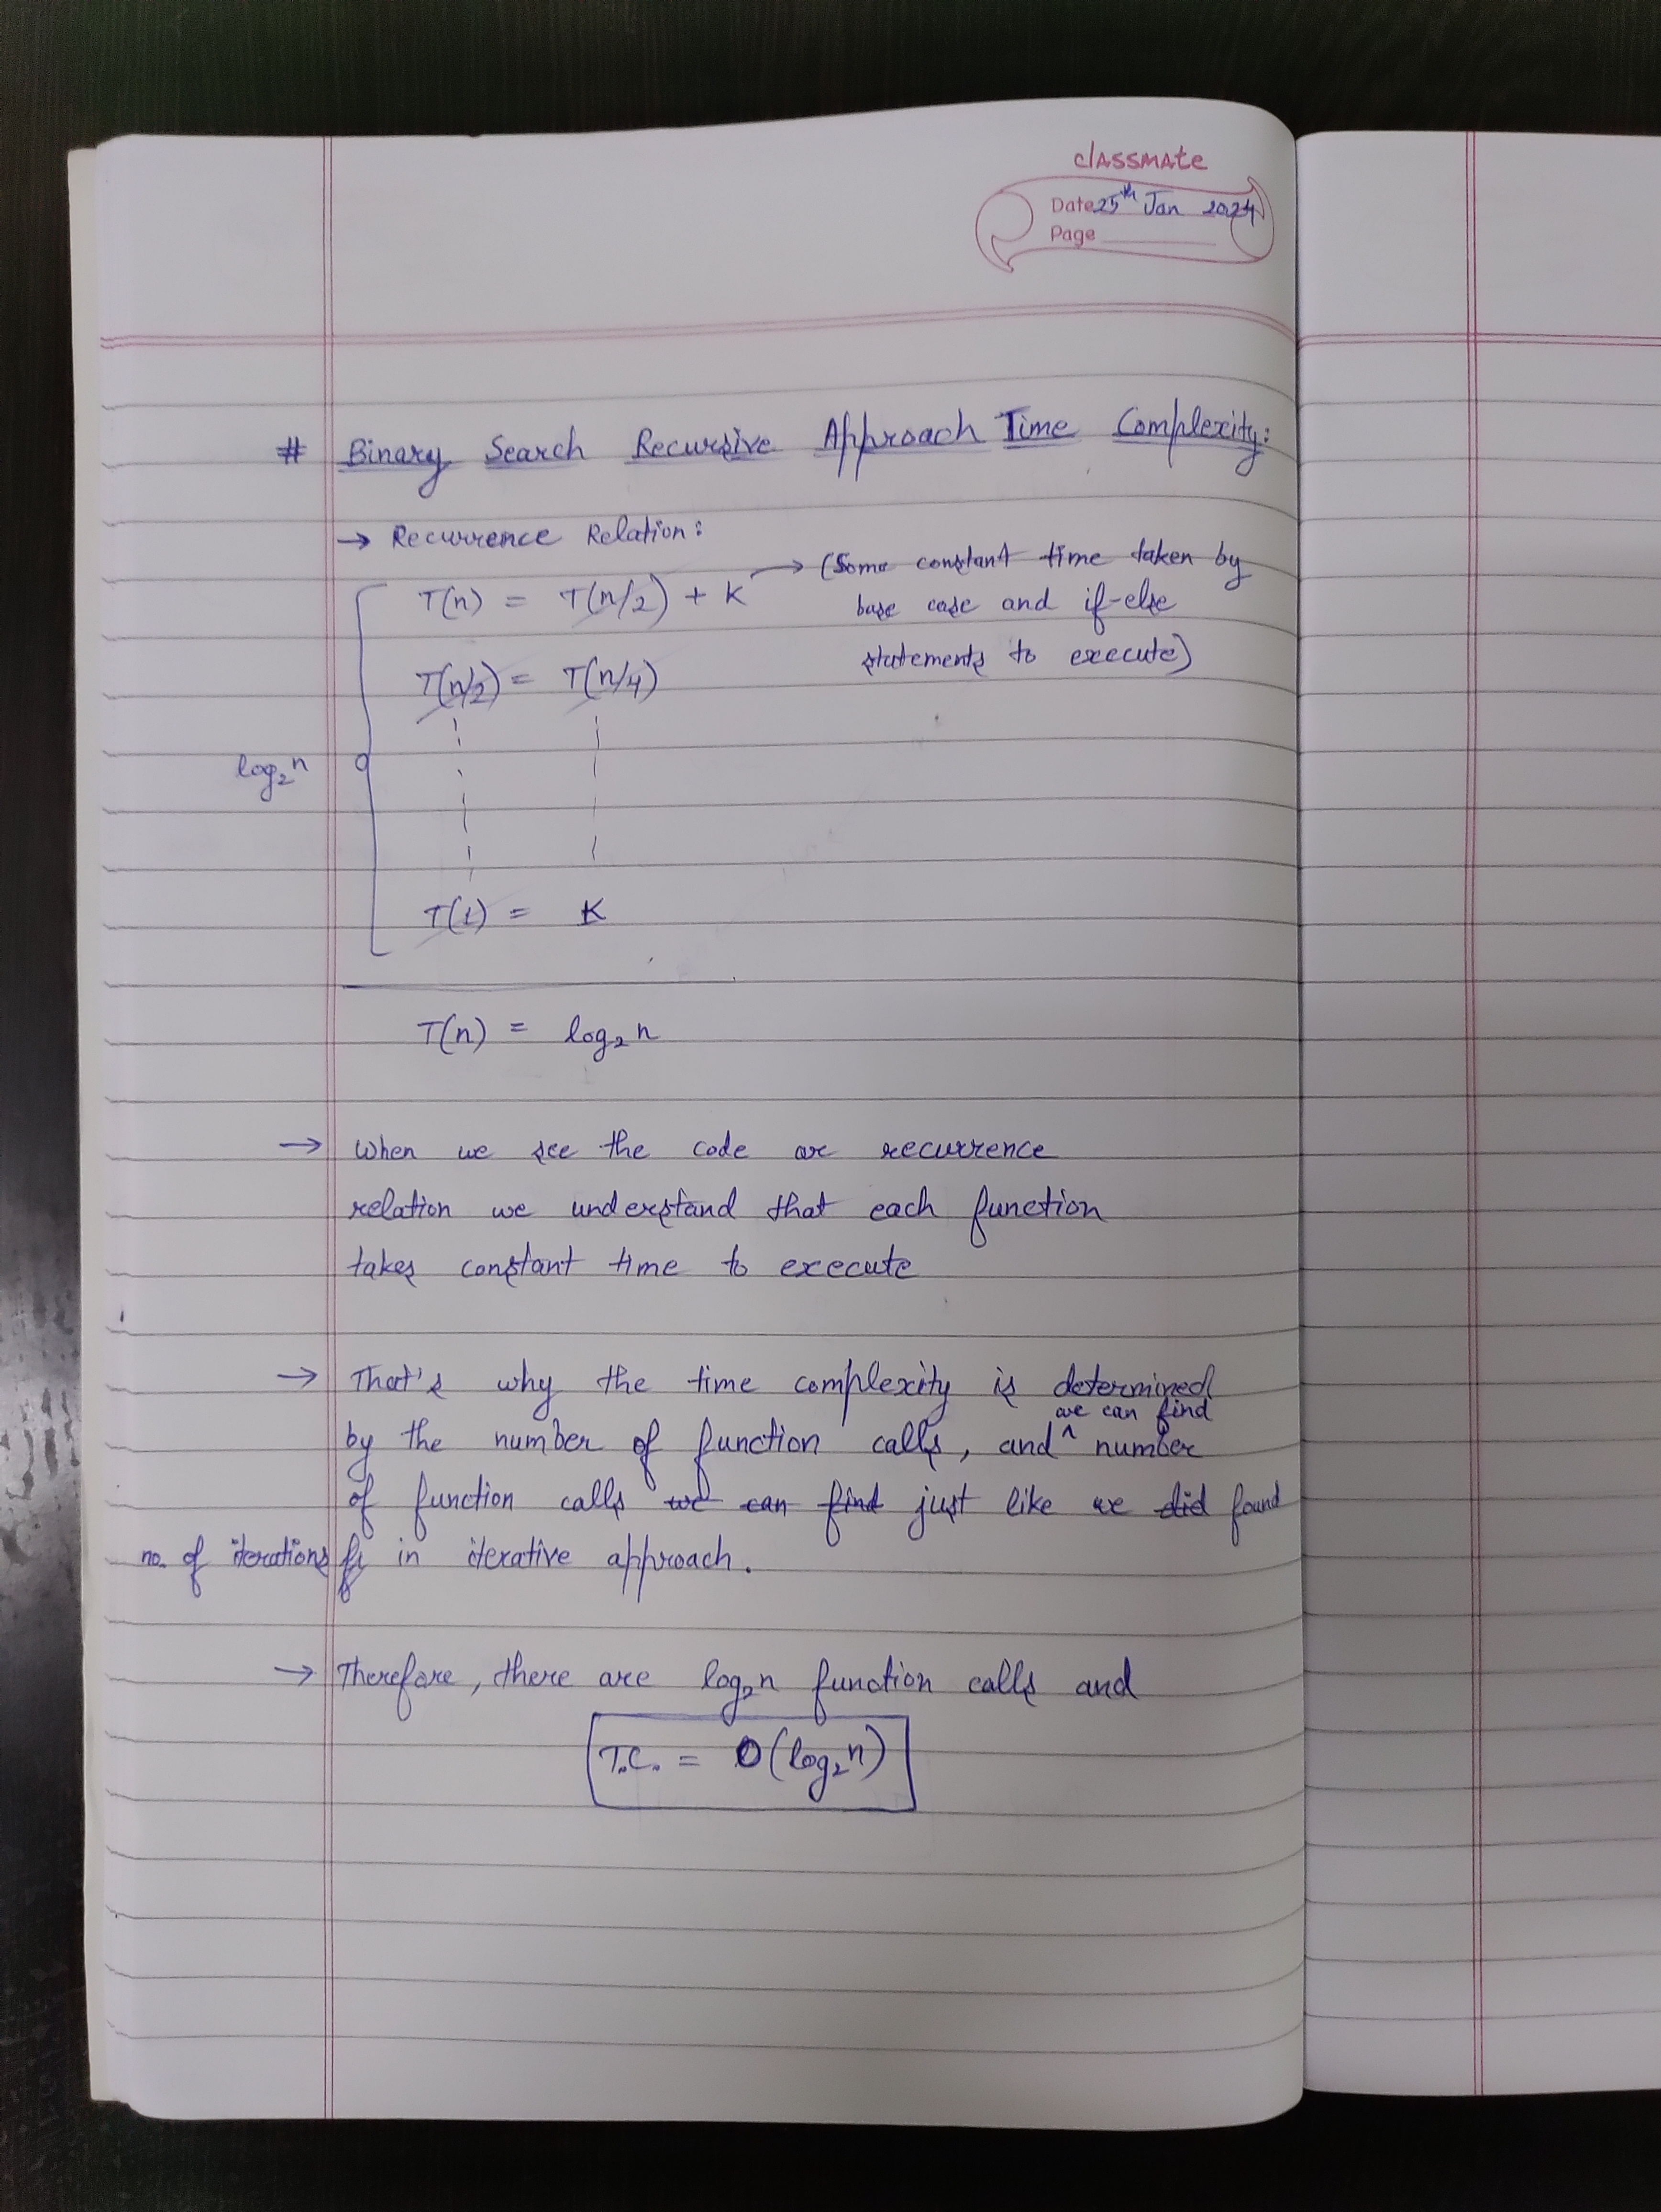 classmate
Date 25th Jan 2024
Page
# Binary Search Recursive Approach Time Complexity:
→ Recurrence Relation:
T(n) = T(n/2) + K → (Some constant time taken by
base case and if-else
statements to execute)
T(n/2) = T(n/4)
log₂n
T(1) = K
T(n) = log₂n
→ When we see the code or recurrence
relation we understand that each function
takes constant time to execute
→ That's why the time complexity is determined
by the number of function calls, and ^ we can find number
of function calls we can find just like we did found
no. of iterations in iterative approach.
→ Therefore, there are log₂n function calls and
T.C. = O(log₂n)